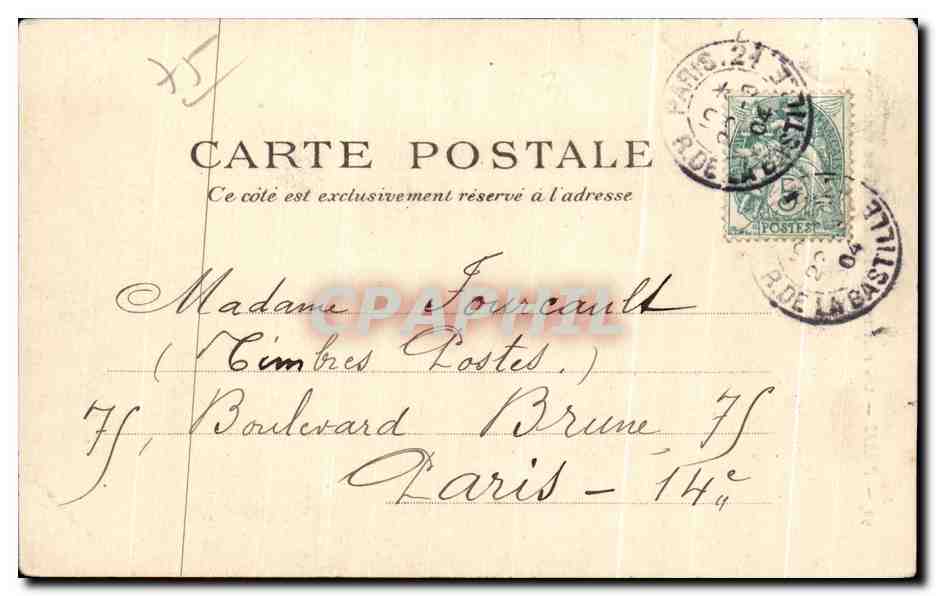 75
PARIS. 21
R. DE LA BASTILLE
04
CARTE POSTALE
Ce côté est exclusivement réservé à l'adresse
5
POSTES
R. DE LA BASTILLE
04
CPAPHIL
Madame Fourcault
(Timbres Postes.)
75, Boulevard Brune, 75
Paris - 14e